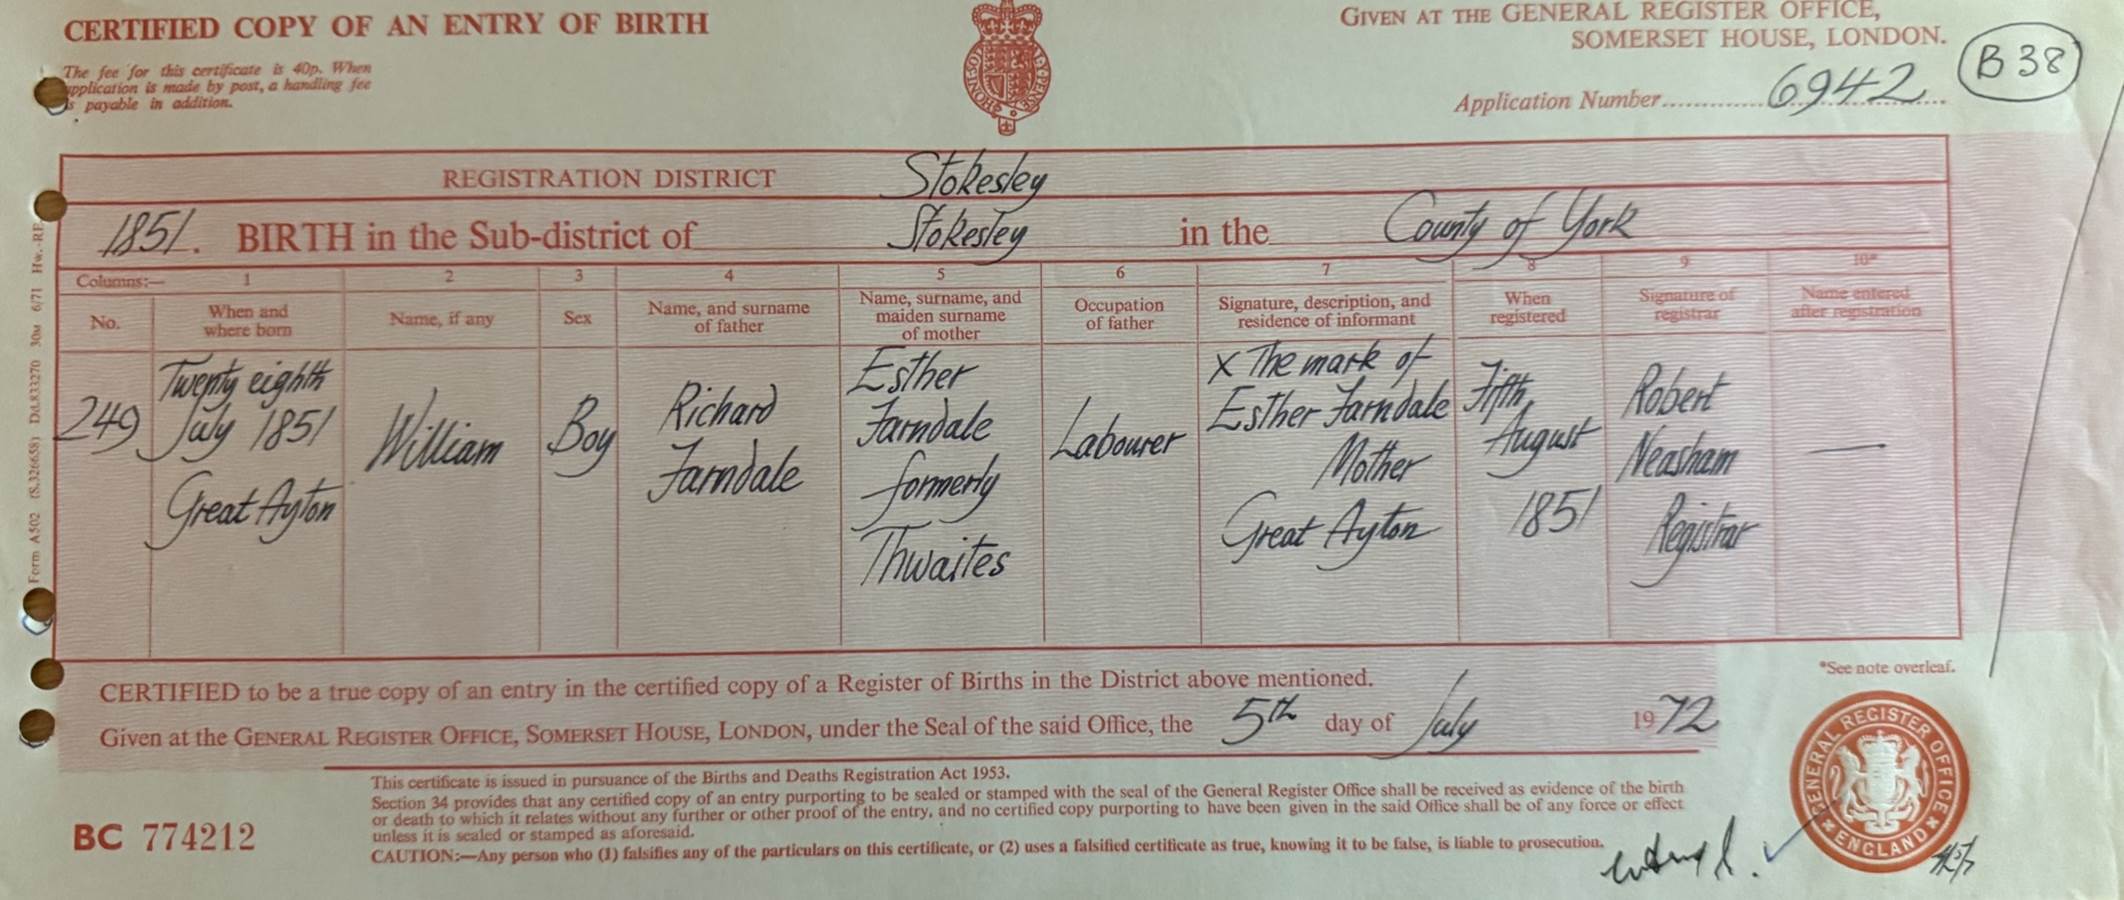 CERTIFIED COPY OF AN ENTRY OF BIRTH
The fee for this certificate is 40p. When
application is made by post, a handling fee
is payable in addition.
GIVEN AT THE GENERAL REGISTER OFFICE,
SOMERSET HOUSE, LONDON.
Application Number 6942
B 38
REGISTRATION DISTRICT Stokesley
1851. BIRTH in the Sub-district of Stokesley in the County of York
Columns:— 1 2 3 4 5 6 7 8 9 10*
No.
When and
where born
Name, if any
Sex
Name, and surname
of father
Name, surname, and
maiden surname
of mother
Occupation
of father
Signature, description, and
residence of informant
When
registered
Signature of
registrar
Name entered
after registration
249
Twenty eighth
July 1851
Great Ayton
William
Boy
Richard
Farndale
Esther
Farndale
formerly
Thwaites
Labourer
X The mark of
Esther Farndale
Mother
Great Ayton
Fifth
August
1851
Robert
Neasham
Registrar
—
*See note overleaf.
CERTIFIED to be a true copy of an entry in the certified copy of a Register of Births in the District above mentioned.
Given at the GENERAL REGISTER OFFICE, SOMERSET HOUSE, LONDON, under the Seal of the said Office, the 5th day of July 1972
This certificate is issued in pursuance of the Births and Deaths Registration Act 1953.
Section 34 provides that any certified copy of an entry purporting to be sealed or stamped with the seal of the General Register Office shall be received as evidence of the birth
or death to which it relates without any further or other proof of the entry, and no certified copy purporting to have been given in the said Office shall be of any force or effect
unless it is sealed or stamped as aforesaid.
CAUTION:—Any person who (1) falsifies any of the particulars on this certificate, or (2) uses a falsified certificate as true, knowing it to be false, is liable to prosecution.
BC 774212
GENERAL REGISTER OFFICE
ENGLAND
Form A502 (S.326658) Dd.833270 30M 6/71 Hw.-RP.